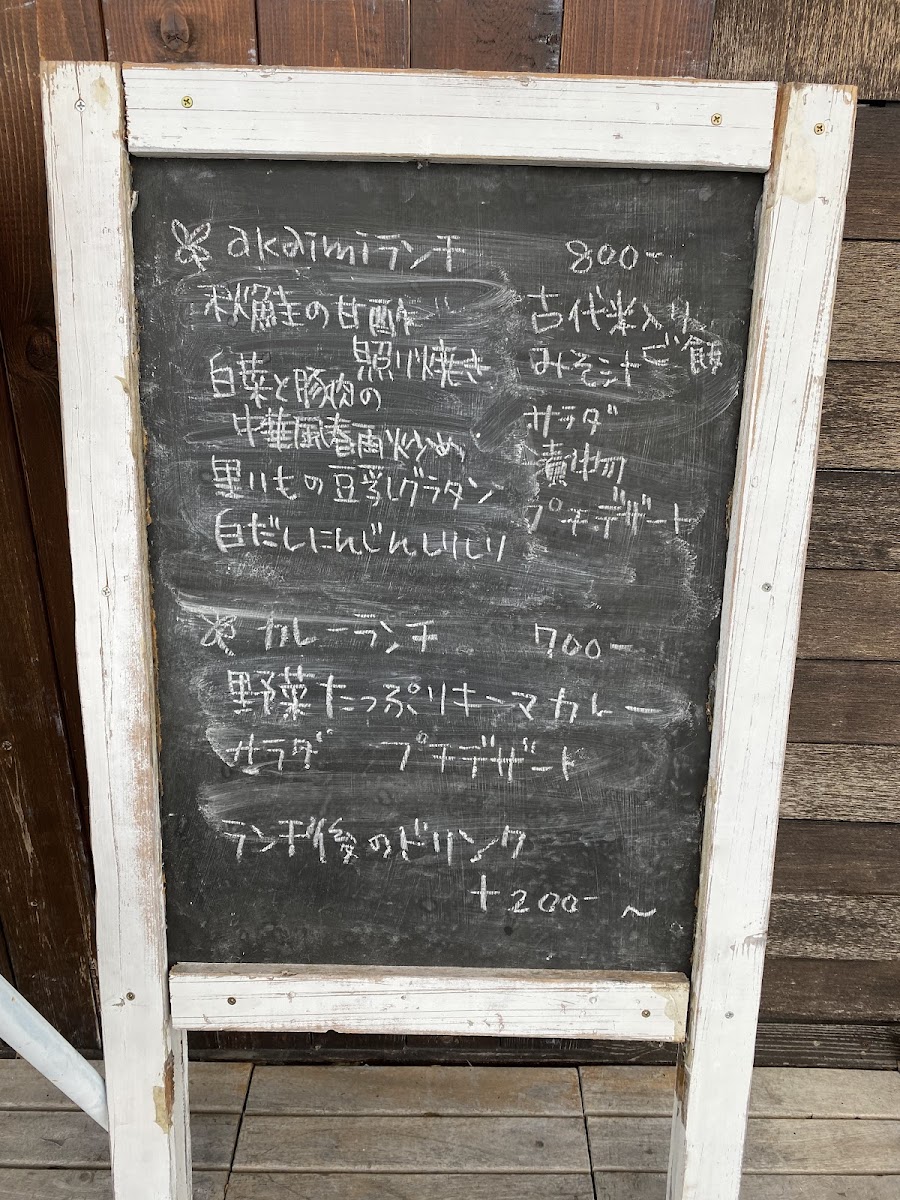 akaimiランチ 800-
秋鮭の甘酒だれ
照り焼き
白菜と豚肉の
中華風春雨炒め
里いもの豆乳グラタン
白だしにんじんしりしり
古代米入り
ご飯
みそ汁
サラダ
漬物
プチデザート
カレーランチ 700-
野菜たっぷりキーマカレー
サラダ プチデザート
ランチ後のドリンク
+200-~